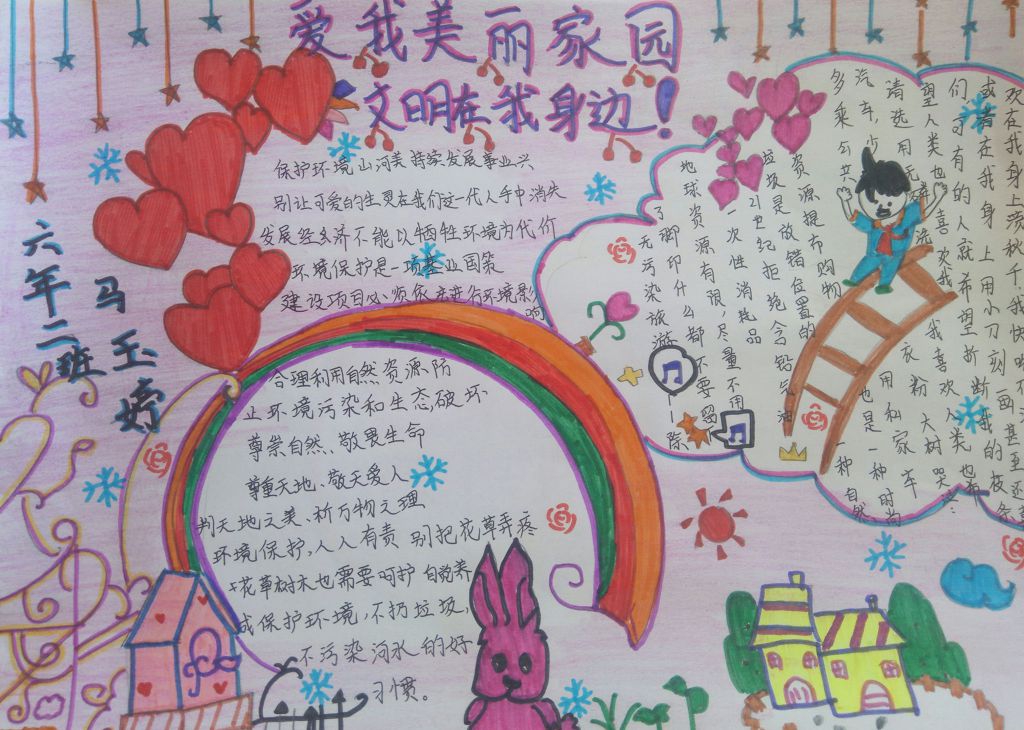 爱我美丽家园
文明在我身边！
六年二班
马玉婷
保护环境山河美持续发展事业兴
别让可爱的生灵在我们这一代人手中消失
发展经济不能以牺牲环境为代价
环境保护是一项基业国策
建设项目必须依法进行环境影响
合理利用自然资源防
止环境污染和生态破坏
尊崇自然、敬畏生命
尊重天地、敬天爱人
判天地之美、析万物之理
环境保护,人人有责 别把花草弄疼
花草树木也需要呵护 自觉养
成保护环境,不扔垃圾,
不污染河水的好
习惯。
欢在我身上荡秋千,我快
或者在我身上用小刀刻画甚至还
们,可有的人就希望折断我的枝条
望人类也喜欢我,我喜欢人类也希
请选用无磷洗衣粉 大树哭泣:
汽车,少用私家车
多乘公共 也是一种时尚
资源提布购物
垃圾是放错位置的
21世纪拒绝含铅汽油
一次性消耗品
地球资源有限,尽量不用
了脚印什么都不要留
无污染旅游——除